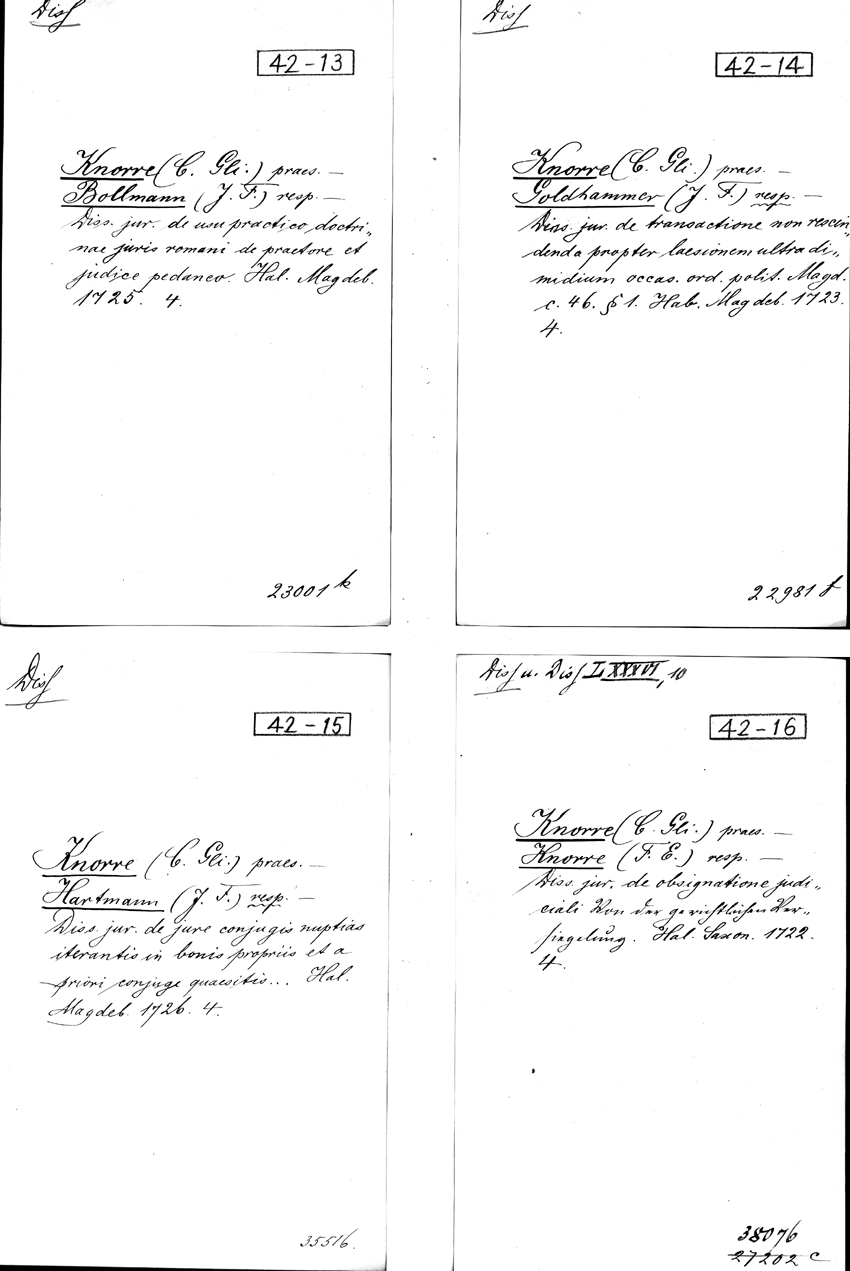 Diss
42-13
Knorre (C. Gli.) praes. —
Bollmann (J. F.) resp. —
Diss. jur. de usu practico doctri„
nae juris romani de praetore et
judice pedaneo. Hal. Magdeb.
1725. 4.
23001 k
Diss
42-14
Knorre (C. Gli.) praes. —
Goldhammer (J. F.) resp. —
Diss. jur. de transactione non rescin„
denda propter laesionem ultra di„
midium occas. ord. polit. Magd.
c. 46. § 1. Hab. Magdeb. 1723.
4.
22981 f
Diss
42-15
Knorre (C. Gli.) praes. —
Hartmann (J. F.) resp. —
Diss. jur. de jure conjugis nuptias
iterantis in bonis propriis et a
priori conjuge quaesitis... Hal.
Magdeb. 1726. 4.
35516.
Diss u. Diss LXXXVI, 10
42-16
Knorre (C. Gli.) praes. —
Knorre (F. E.) resp. —
Diss. jur. de obsignatione judi„
ciali Von der gerichtlichen Ver„
siegelung. Hal. Saxon. 1722.
4.
38076
27202 c